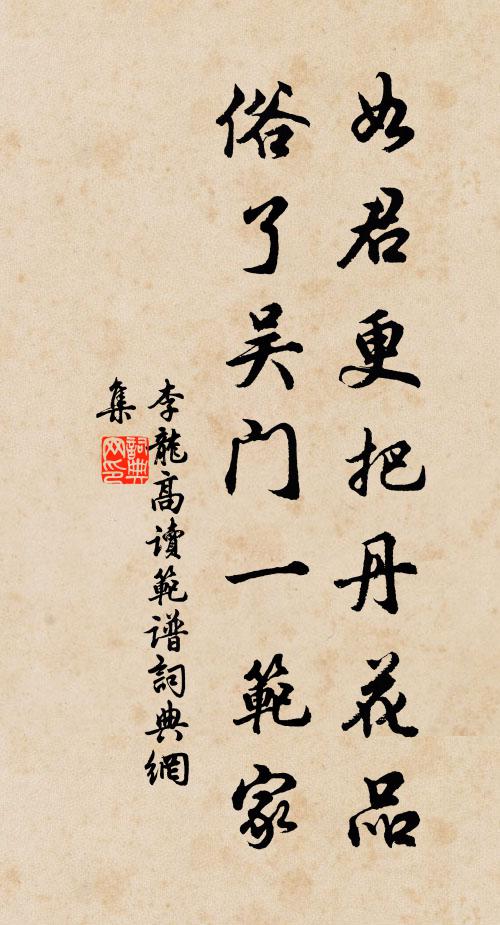 如君更把丹花品
俗了吴门一範家
李龍高讀範谱詞典網
集
詞典
网印